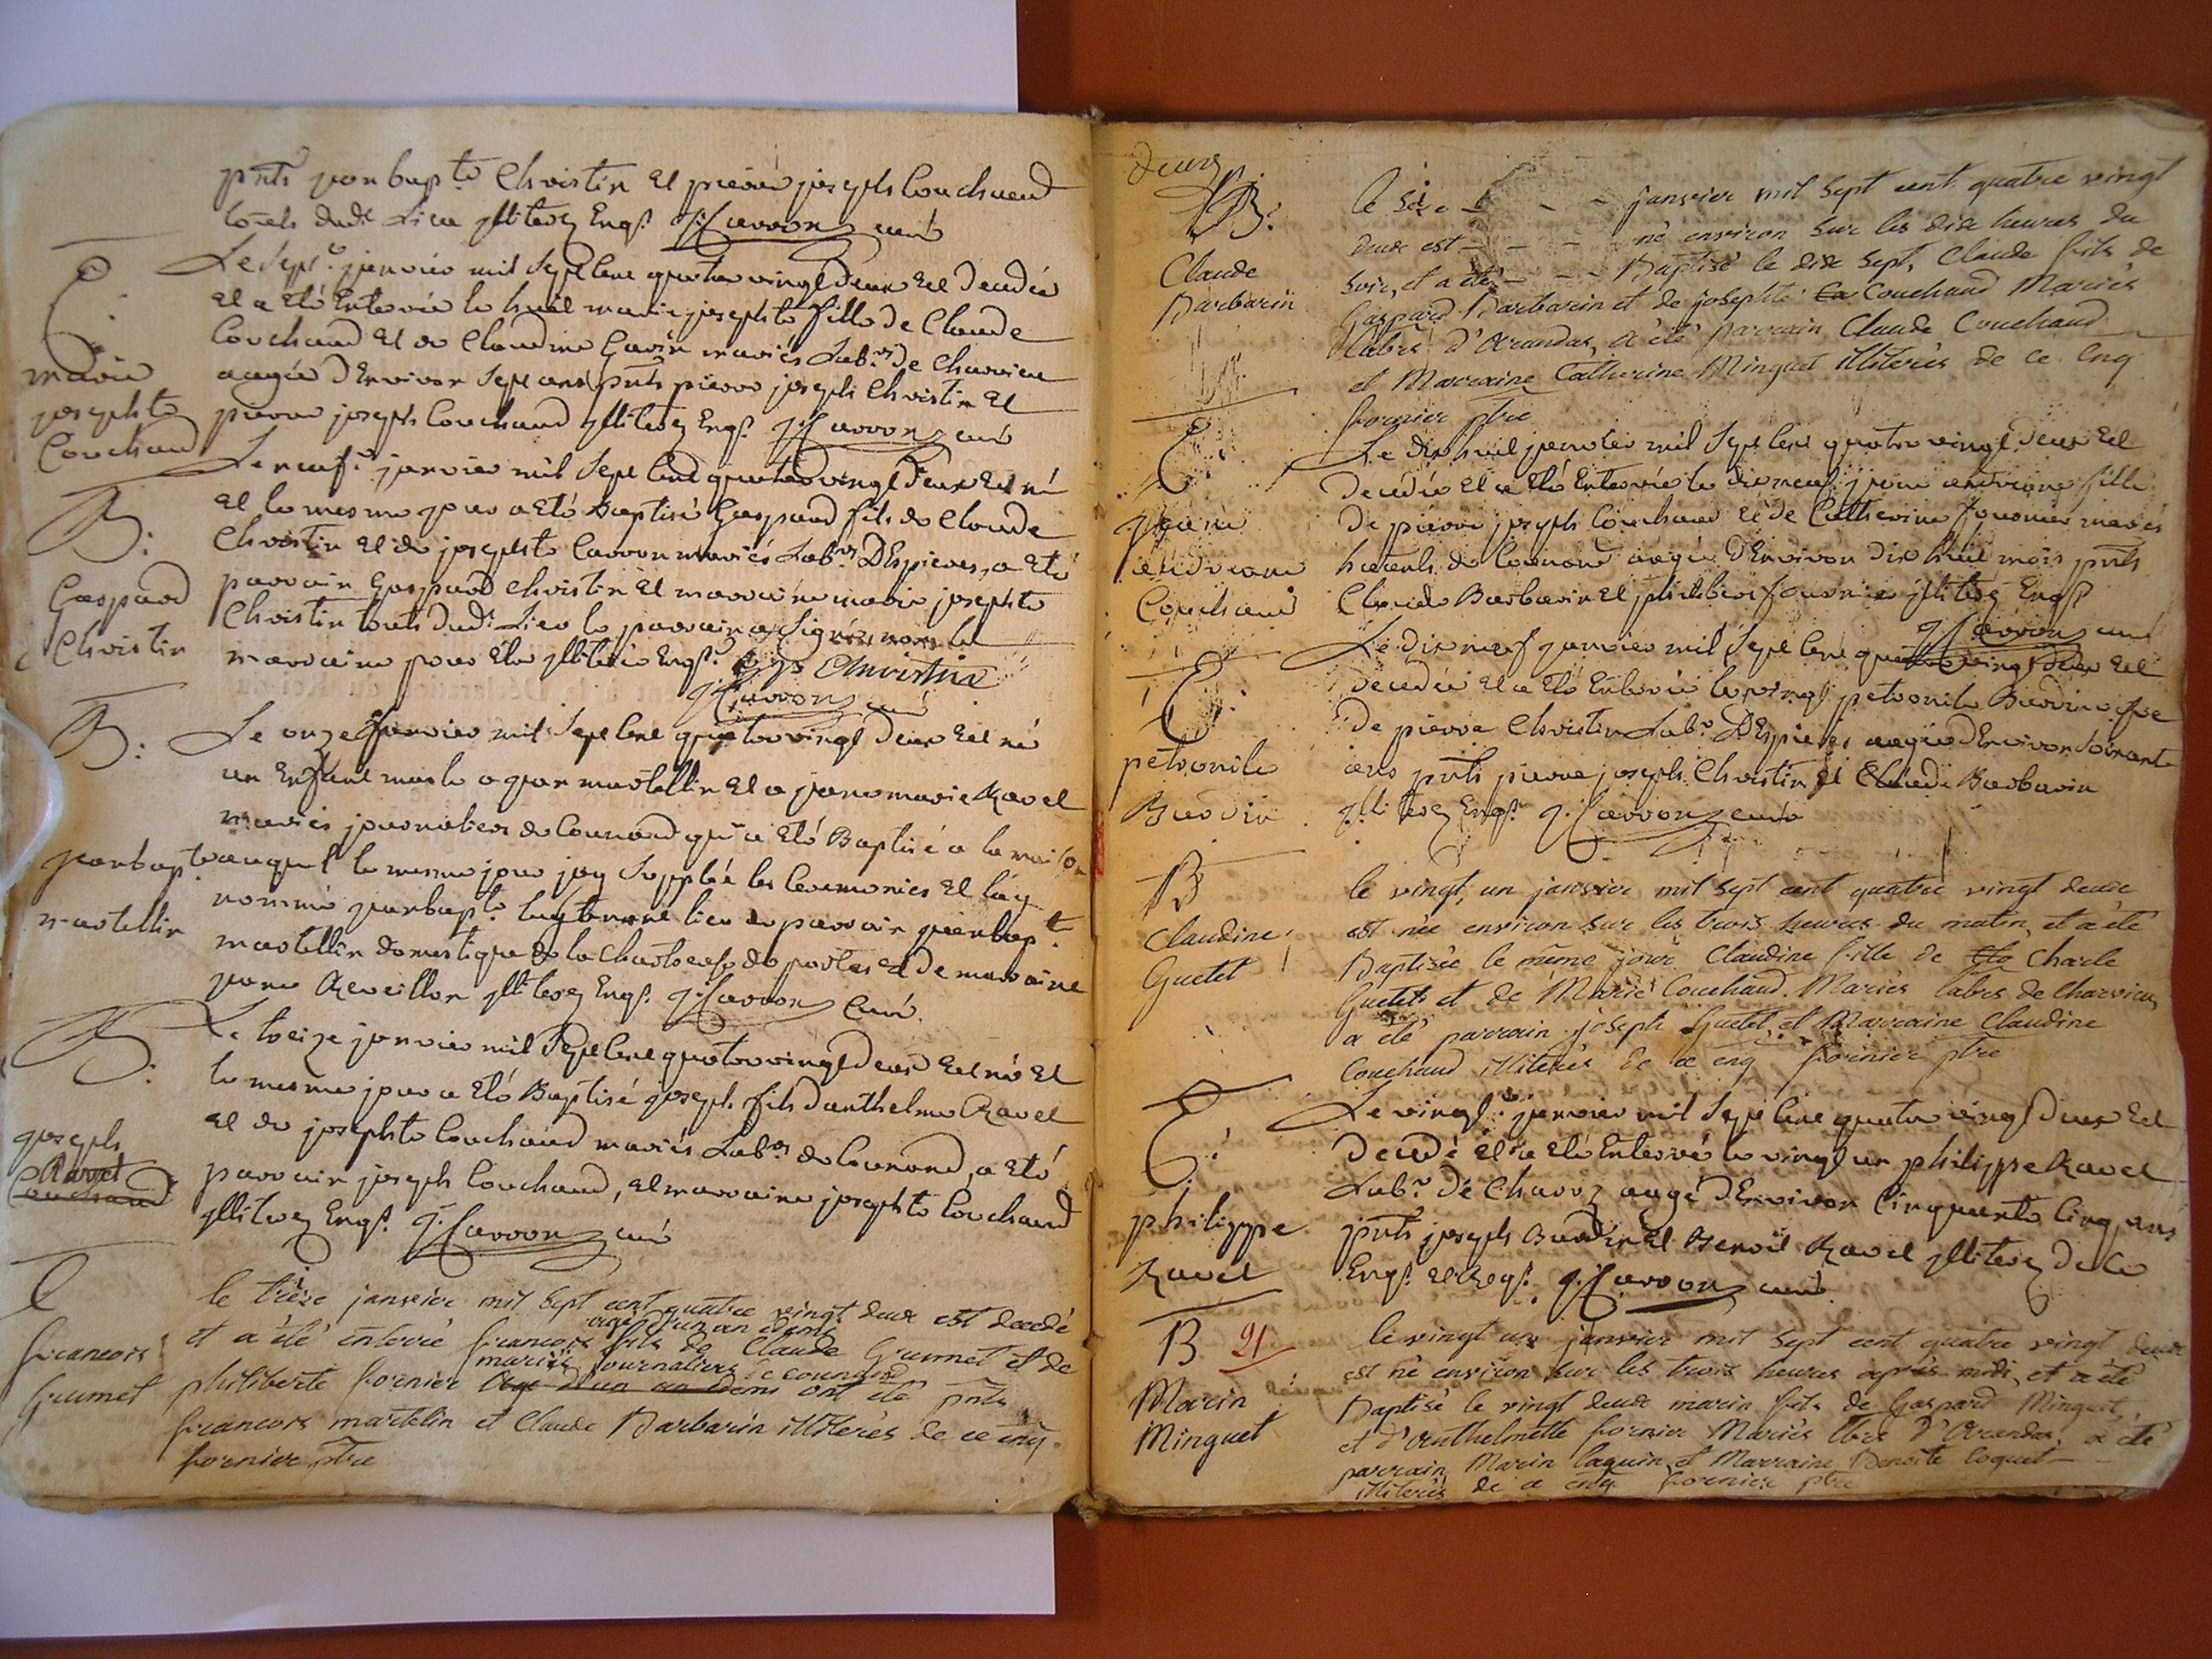 pnts jean bapte Christin et pierre joseph Couchaud
touts dud. Lieu illiterez Enqs. J: Carron curé
E.
marie
josephte
Couchaud
Le sept.e janvier mil Sept Cent quatre vingt deux Est decedée
et a Eté Enterrée le huit marie josephte fille de Claude
Couchaud et de Claudine Gavin mariés Labrs. de Charvieu
aagée d'Environ Sept ans pnts pierre joseph Christin et
pierre joseph Couchaud illiterez Enqs. J: Carron curé
B:
Gaspard
Christin
Le neuf.e janvier mil Sept Cent quatre vingt deux Est né
et le mesme jour a Eté Baptisé Gaspard fils de Claude
Christin et de josephte Carron mariés Labrs. D'Espieres, a Eté
parrain Gaspard Christin et marraine marie josephte
Christin touts dudt. Lieu le parrain a Signé non la
marraine pour Etre illiterée Enqse. Christin
J: Carron curé
B:
jean bapte
martellin
Le onze janvier mil Sept Cent quatre vingt deux Est né
un Enfant masle a jean martellin et a jeane marie Ravel
mariés journaliers de Counand qui a Eté Baptisé a la maison
auquel le mesme jour jay Suppléé les Ceremonies et l'ay
nommé jean bapte luy tenant lieu de parrain jean bapt.
martellin domestique de la Chartreuse de portes et de marraine
jeane Reveillon illiterez Enqs. J: Carron Curé
B:
joseph
Ravet
Couchaud
Le treize janvier mil Sept Cent quatre vingt deux Est né et
le mesme jour a Eté Baptisé joseph fils d'anthelme Ravel
et de josephte Couchaud mariés Labrs. de Counand, a Eté
parrain joseph Couchaud, et marraine josephte Couchaud
illiterez Enqs. J: Carron curé
E
francois
Grumet
le trèze janvier mil sept cent quatre vingt deux est decedé
agé d'un an demi
et a été enterré francois fils de Claude Grumet et de
mariés journaliers de counand
philiberte fornier agé d'un an demi ont été pnts
francois martelin et Claude Barbarin illiterés de ce enq.
fornier ptre
deux
B:
Claude
Barbarin
le seise - - - janvier mil sept cent quatre vingt
deux est - - - né environ sur les dix heures du
soir, et a été - - - Baptisé le dix sept, Claude fils de
Gaspard Barbarin et de josephte Ca Couchaud Mariés
labrs d'Arandas, a été parrain Claude Couchaud
et Marraine Catherine Minguet illiterés de ce enq
fornier ptre
E:
jeane
andreane
Couchaud
Le dix huit janvier mil Sept Cent quatre vingt deux Est
decedée et a Eté Enterrée le dix neuf jeane andreane fille
de pierre joseph Couchaud et de Catherine fournier mariés
de Counand aagée d'Environ dix huit mois pnts
Claude Barbarin et philibert fournier illiterez Enqs
J: Carron curé
E:
petronile
Burdin
Le dix neuf janvier mil Sept Cent quatre vingt deux Est
decedée et a Eté Enterrée le vingt petronile Burdin fe
de pierre Christin Labr. D'Espieres aagée d'Environ Soixante
ans pnts pierre joseph Christin et Claude Barbarin
illiterez Enqs. J: Carron curé
B
claudine
Guetet
le vingt, un janvier mil sept cent quatre vingt deux
est née environ sur les trois heures du matin, et a été
Baptisée le même jour Claudine fille de Cla Charle
Guetet et de Marie Couchaud. Mariés labrs de Charvieu
a été parrain joseph Guetet, et Marraine Claudine
Couchaud illiterés de ce enq fornier ptre
E:
philippe
Ravel
Le vingt.e janvier mil Sept Cent quatre vingt deux Est
decedé et a Eté Enterré le vingt un philippe Ravel
Labr. de Charvz aagé d'Environ Cinquante Cinq ans
pnts joseph Burdin et Benoit Ravel illiterez de Ce
Enqs. et Reqs. J: Carron curé
B 21
Marin
Minguet
le vingt un janvier mil sept cent quatre vingt deux
est né environ sur les trois heures après midi, et a été
Baptisé le vingt deux marin fils de Gaspard Minguet,
et d'Anthelmette fornier Mariés lbrs d'Arandas, a été
parrain Marin laguin, et Marraine Benoite Coquet
illiterés de ce enq. fornier ptre